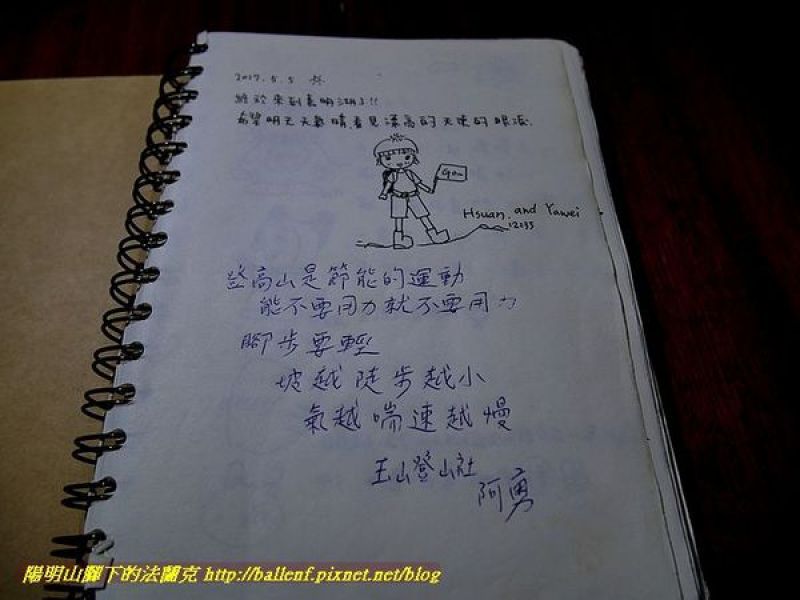 2017.5.5
終於來到嘉明湖了!!
希望明天天氣晴,看見漂亮的天使的眼淚.
Go~
Hsuan. and Yawei
登高山是節能的運動
能不要用力就不要用力
腳步要輕
坡越陡步越小
氣越喘速越慢
玉山登山社
阿勇
陽明山腳下的法蘭克 http://ballenf.pixnet.net/blog